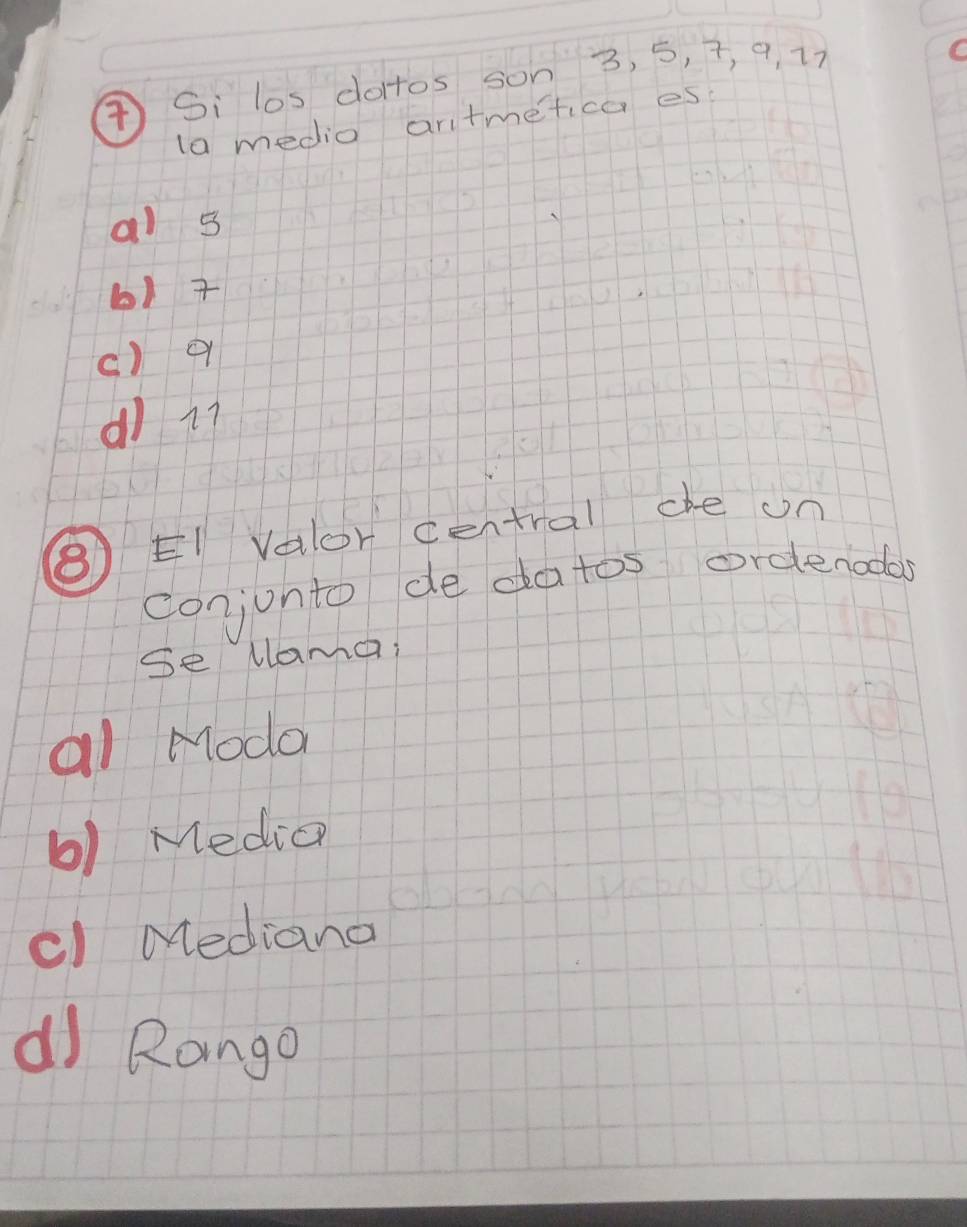 7 Si los datos son 3, 5, 7, 9, 11
la media aritmética es:
a) 5
b) 7
c) 9
d) 11
8 El Valor central de un
conjunto de datos ordenados
se llama:
a) Moda
b) Media
c) Mediana
d) Rango